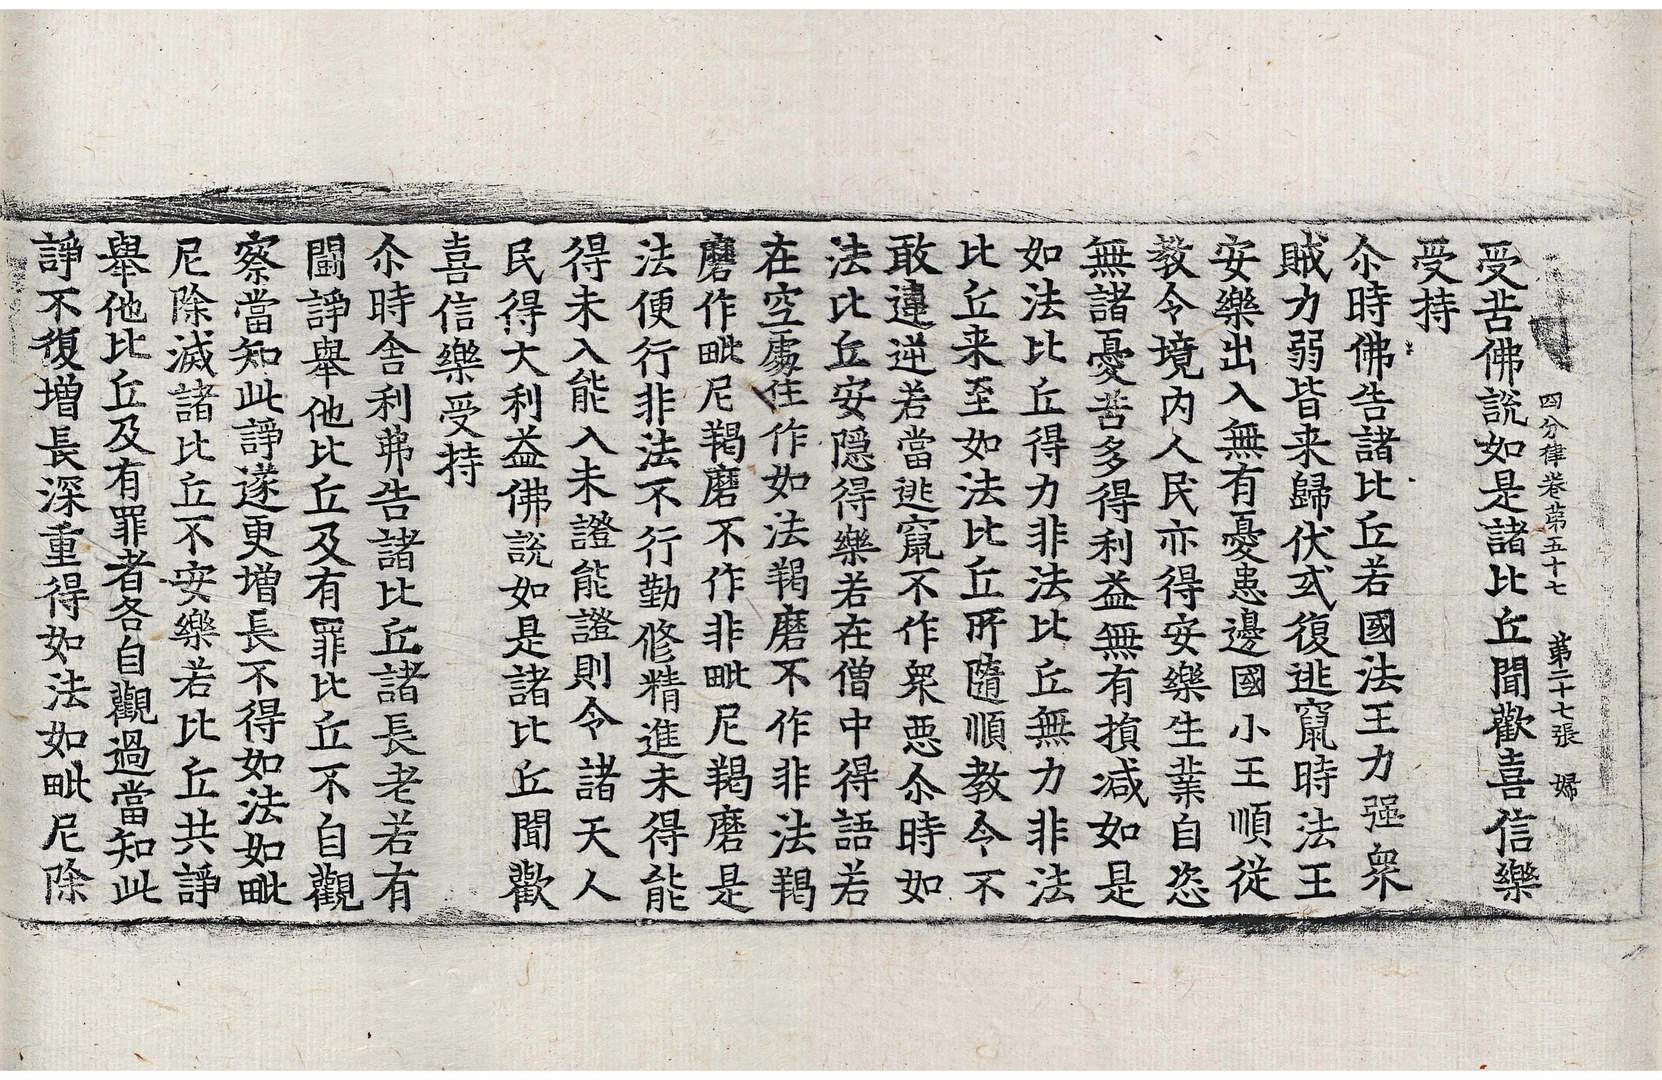 四分律卷第五十七　第二十七張　婦
受苦佛說如是諸比丘聞歡喜信樂
受持
尒時佛告諸比丘若國法王力强衆
賊力弱皆来歸伏或復逃竄時法王
安樂出入無有憂患邊國小王順從
教令境內人民亦得安樂生業自恣
無諸憂苦多得利益無有損减如是
如法比丘得力非法比丘無力非法
比丘来至如法比丘所隨順教令不
敢違逆若當逃竄不作衆惡尒時如
法比丘安隱得樂若在僧中得語若
在空處住作如法羯磨不作非法羯
磨作毗尼羯磨不作非毗尼羯磨是
法便行非法不行勤修精進未得能
得未入能入未證能證則令諸天人
民得大利益佛說如是諸比丘聞歡
喜信樂受持
尒時舍利弗告諸比丘諸長老若有
鬪諍舉他比丘及有罪比丘不自觀
察當知此諍遂更增長不得如法如毗
尼除滅諸比丘不安樂若比丘共諍
舉他比丘及有罪者各自觀過當知此
諍不復增長深重得如法如毗尼除